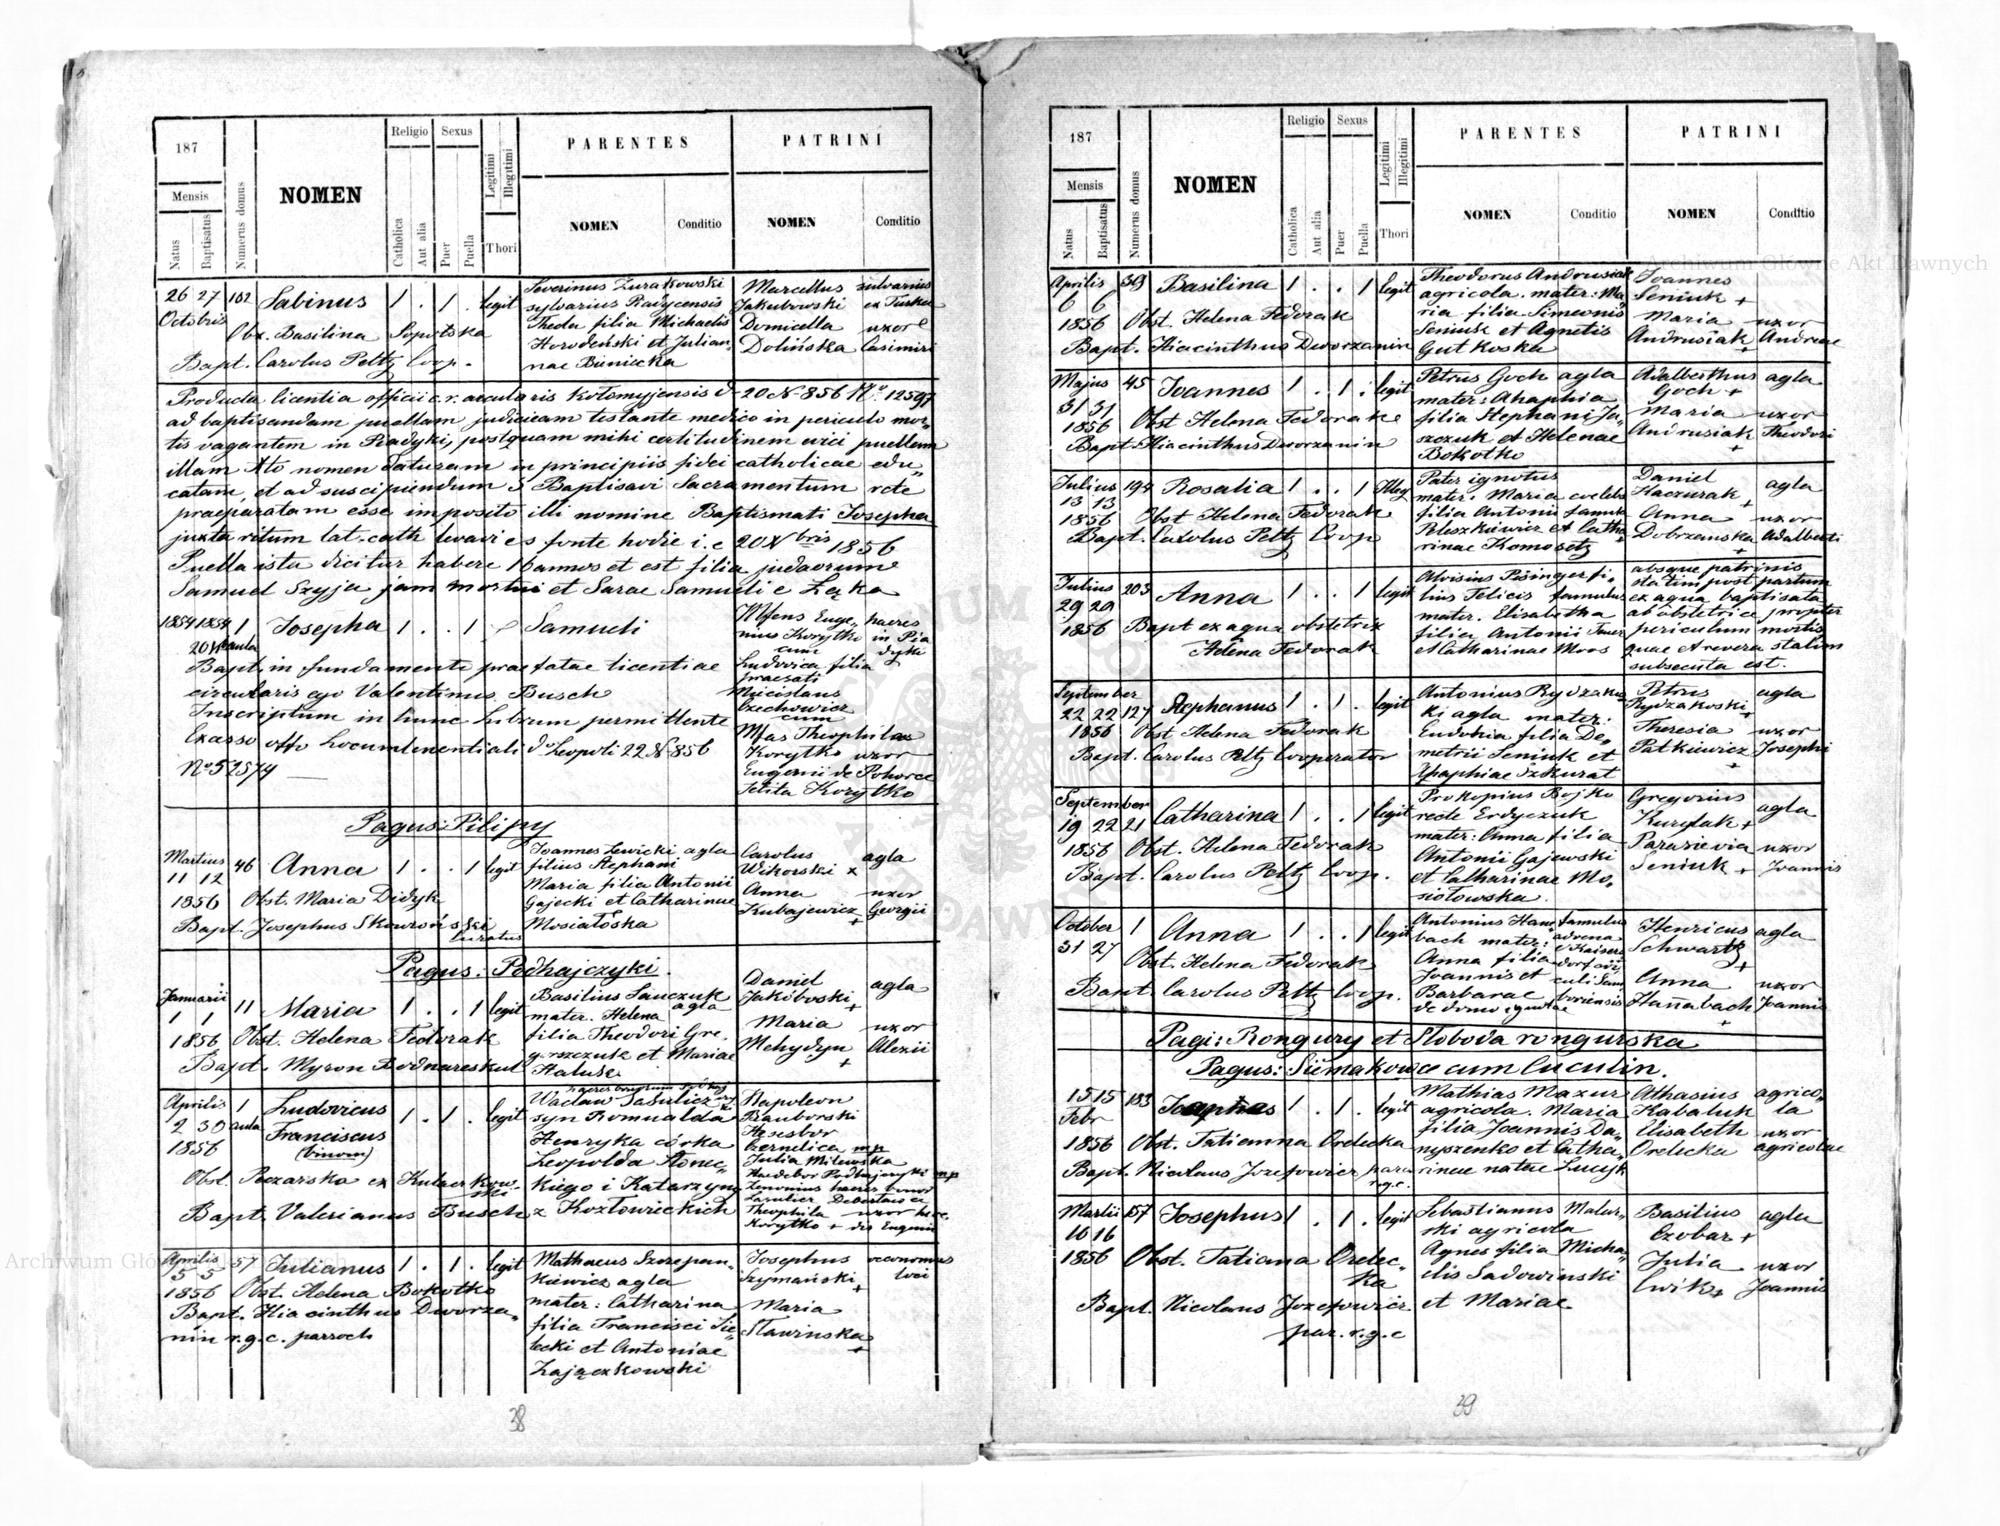 187
Mensis
Natus
Baptisatus
Numerus domus
NOMEN
Religio
Catholica
Aut alia
Sexus
Puer
Puella
Legitimi
Illegitimi
Thori
PARENTES
NOMEN
Conditio
PATRINI
NOMEN
Conditio
26 27 102 Sabinus 1 . 1 . legit
Octobris
Obs. Basilina Sopotska
Bapt. Carolus Peltz Coop.
Severinus Żurakowski
sylvarius Piadycensis
Thecla filia Michaelis
Horodeński et Julian-
nae Biniecka
Marcellus
Jakubowski
Domicella uxor
Dolińska Casimiri
Producta licentia officii c. r. circularis Kołomyjensis d 20 N. 856 No 12597
ad baptisandam puellam judaicam testante medico in periculo mor-
tis vagantem in Piadyki, postquam mihi certitudinem evici puellam
illam Ato nomen daturam in principiis fidei catholicae edu-
catam, et ad suscipiendum S Baptismi Sacramentum rite
praeparatam esse imposito illi nomine Baptismati Josepha
juxta ritum lat. cath levavi es fonte hodie i. e 20 Xbris 1856
Puella ista dicitur habere 16 annos et est filia judaeorum
Samuel Szyja jam mortui et Sarae Samueli e Łąka
1 Josepha 1 . . 1
Samueli
Bapt in fundamento praefatae licentiae
circularis ego Valentinus Busch
Inscriptum in hunc Librum permittente
Excelso offo Locumtenentiali do Leopoli 22 N. 856
No 52574
nius Korytko in Pia
cum dyki
Ludovica filia
praefati
Miecislaus
Czechowicz
cum
Theophila
Korytko uxor
Eugenii de Pohorce
Korytko
Pagus: Pilipy
Martius 46 Anna 1 . . 1 legit
11 12
1856 Obst. Maria Didyk
Bapt. Josephus Skowroński
Curatus
Joannes Lewicki agla
filius Stephani
Maria filia Antonii
Gajecki et Catharinae
Mosiałoska
Carolus agla
Wikorski x
Anna uxor
Kubajewicz Georgii
+
Pagus: Podhajczyki
Januarii 11 Maria 1 . . 1 legit
1 1
1856 Obst. Helena Fedorak
Bapt. Myron Bodnareskul
Basilius Sauczuk
mater. Helena agla
filia Theodori Gre-
gorszczuk et Mariae
Haluk
Daniel agla
Jakóboski
+
Maria uxor
Mehydyn Alexii
+
Aprilis 1 Ludovicus 1 . 1 . legit
2 30 aula Franciscus
1856 (binom)
Obst. Poczarska ex Kulaczkow-
ski
Bapt. Valerianus Busch
Wacław Sasulicz
syn Romualda
Henryka córka
Leopolda Stonec-
kiego i Katarzyny
z Kozłowieckich
Napoleon
Bauborski
Czernelica mp
Julia Milewska
Theophila uxor
Korytko + Eugenii
Aprilis 57 Julianus 1 . 1 . legit
5 5
1856 Obst. Helena Bokotko
Bapt. Hiacinthus Dworza-
nin r. g. c. parroch
Mathaeus Szczepan-
kiewicz agla
mater: Catharina
filia Francisci Sie-
lecki et Antoniae
Zajączkowski
Josephus oeconomus
Szymański loci
+
Maria
Stawinska
+
38
187
Mensis
Natus
Baptisatus
Numerus domus
NOMEN
Religio
Catholica
Aut alia
Sexus
Puer
Puella
Legitimi
Illegitimi
Thori
PARENTES
NOMEN
Conditio
PATRINI
NOMEN
Conditio
Aprilis 39 Basilina 1 . . 1 legit
6 6
1856 Obst. Helena Fedorak
Bapt. Hiacinthus Dworzanin
Theodorus Andrusiak
agricola. mater: Ma-
ria filia Simeonis
Seniuk et Agnetis
Gutkoska
Joannes
Seniuk +
Maria uxor
Andrusiak Andreae
+
Majus 45 Joannes 1 . 1 . legit
31 31
1856 Obst Helena Fedorak
Bapt. Hiacinthus Dworzanin
Petrus Goch agla
mater: Ahaphia
filia Stephani Ja-
szczuk et Helenae
Bokotko
Adalberthus agla
Goch +
Maria uxor
Andrusiak Theodori
+
Julius 194 Rosalia 1 . . 1 Illeg
13 13
1856 Obst Helena Fedorak
Bapt. Carolus Peltz Coop
Pater ignotus
mater. Maria coelebs
filia Antonii famuli
Peleszkiewicz et Catha-
rinae Komosetz
Daniel agla
Kaczurak
+
Anna uxor
Dobrzanska Adalberti
+
Julius 203 Anna 1 . . 1 legit
29 29
1856 Bapt ex aqua obstetrix
Helena Fedorak
Aloisius Pisinger fi-
lius Felicis famulus
mater. Elisabetha
filia Antonii
et Catharinae Moos
absque patrinis
statim post partum
ex aqua baptisata
ab obstetrice propter
periculum mortis
quae et revera statim
subsecuta est.
September
22 22 127 Stephanus 1 . 1 . legit
1856 Obst Helena Fedorak
Bapt. Carolus Peltz Cooperator
Antonius Rydzakos-
ki agla mater:
Eudokia filia De-
metrii Seniuk et
Ahaphiae Szkurat
Petrus agla
Rydzakoski
+
Theresia uxor
Patkiewicz Josephi
+
September
19 22 21 Catharina 1 . . 1 legit
1856 Obst. Helena Fedorak
Bapt. Carolus Peltz Coop.
Prokopius Bojko
recte Erdyczuk
mater: Anna filia
Antonii Gajewski
et Catharinae Mo-
siołowska.
Gregorius agla
+
Parasievia uxor
Seniuk + Joannis
October 1 Anna 1 . . 1 legit
31 27
Obst. Helena Fedorak
Bapt. Carolus Peltz Coop.
Antonius Hann- famulus
bach mater: advena
Anna filia
Joannis et culi Sam-
Barbarae boriensis
de domo ignotae
Henricus agla
Schwartz
+
Anna uxor
Hannabach Joannis
+
Pagi: Rongury et Słoboda rongurska
Pagus: Siemakowce cum Cuculin.
15 15 183 Josephus 1 . 1 . legit
Febr
1856 Obst. Tatianna Orelecka
Bapt. Nicolaus Jozefowicz par.
r. g. c.
Mathias Mazur
agricola. Maria
filia Joannis Da-
nyszenko et Catha-
rinae natae Lucyk
Athasius agrico-
Kabaluk la
Elisabeth uxor
Orelecka agricolae
Martii 157 Josephus 1 . 1 . legit
16 16
1856 Obst. Tatiana Orelec-
ka
Bapt. Nicolaus Jozefowicz
par. r. g. c
Sebastianus Matur-
ski agricola
Agnes filia Micha-
elis Sadowinski
et Mariae
Basilius agla
Czobar +
Julia uxor
Cwik + Joannis
39
Archiwum Główne Akt Dawnych
Archiwum Główne Akt Dawnych